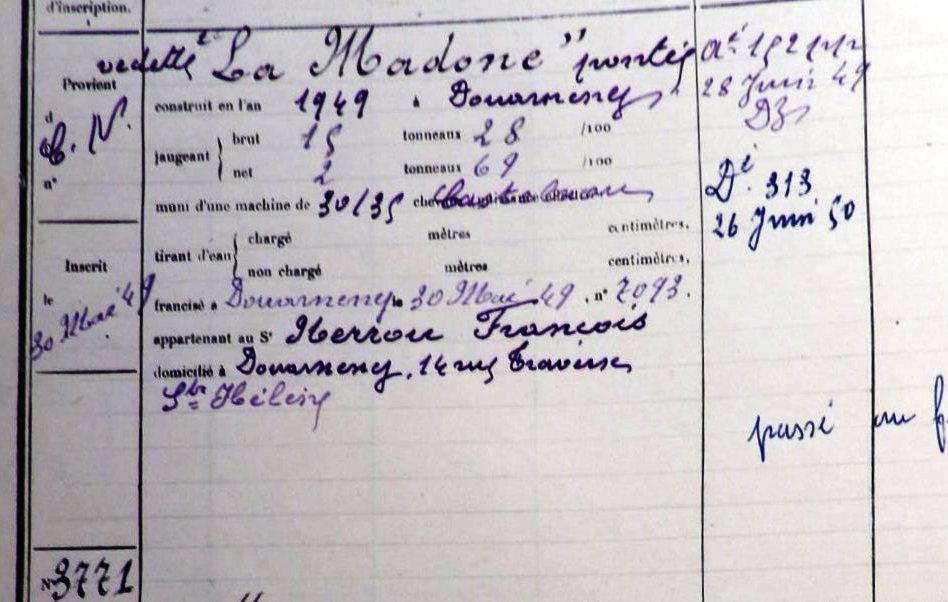 d'inscription.
vedette "La Madone" pontée
Provient
d
C. N.
n°
construit en l'an 1949 à Douarnenez
jaugeant brut 15 tonneaux 28 /100
net 2 tonneaux 69 /100
muni d'une machine de 30/35 che
tirant d'eau chargé mètres centimètres.
non chargé mètres centimètres.
francisé à Douarnenez le 30 Mai 49. n° 7093.
appartenant au Sr François
domicilié à Douarnenez, 14 rue Traverse
Ste Hélène
Inscrit
le
30 Mai 49
N° 3771
28 Juin 49
DZ
Dt. 313
26 Juin 50
passé au